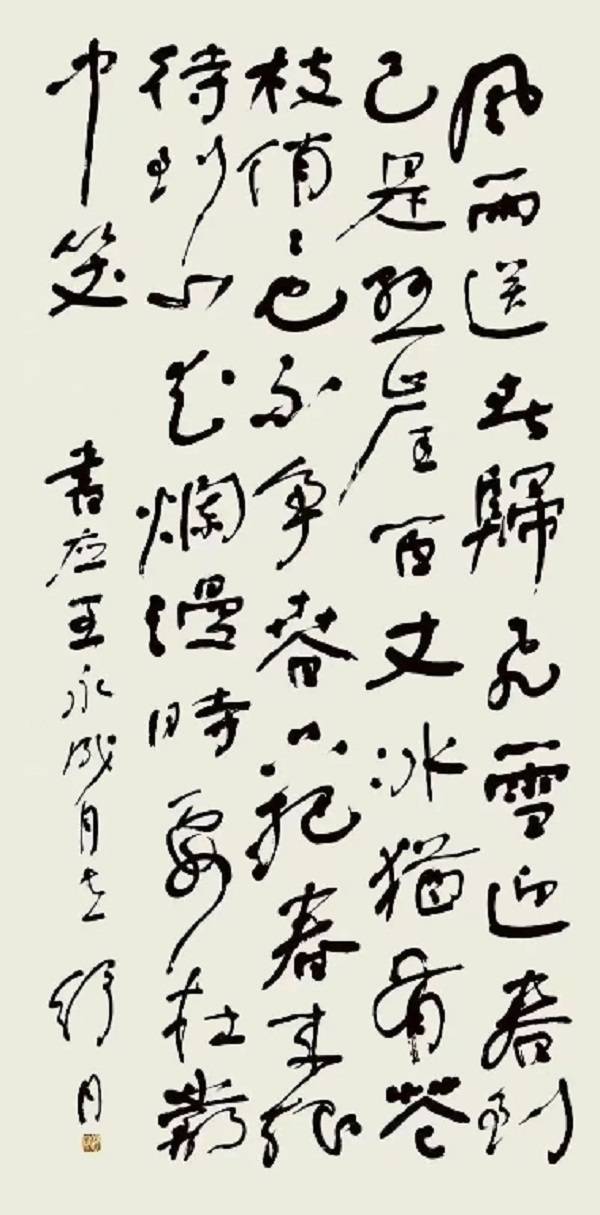 風雨送春歸飛雪迎春到
已是懸崖百丈冰猶有花
枝俏俏也不爭春只把春來報
待到山花爛漫時在叢
中笑
書应王永成